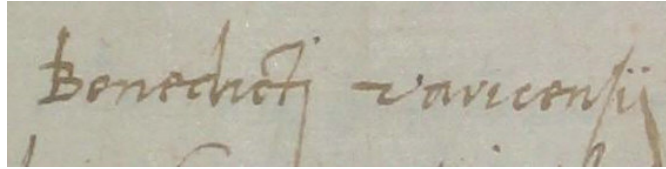 Benedictj vavicensij